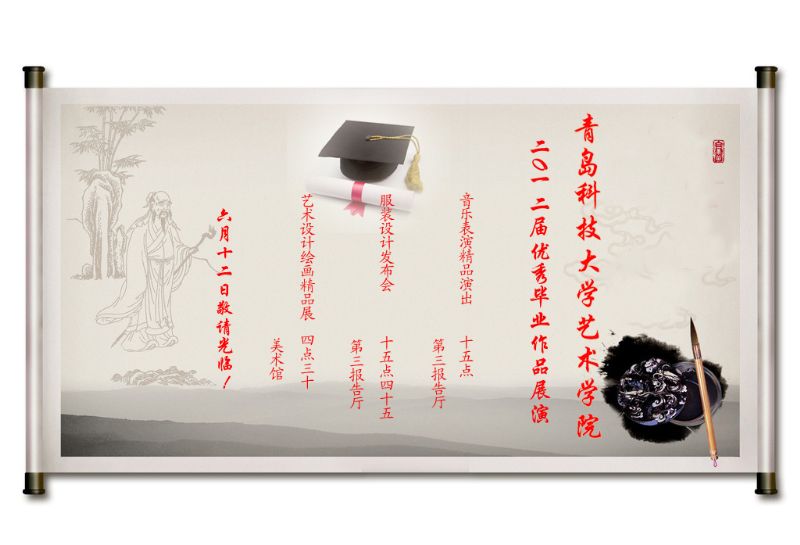 青岛科技大学艺术学院
二〇一二届优秀毕业作品展演
音乐表演精品演出 十五点
第三报告厅
服装设计发布会 十五点四十五
第三报告厅
艺术设计绘画精品展 四点三十
美术馆
六月十二日敬请光临！